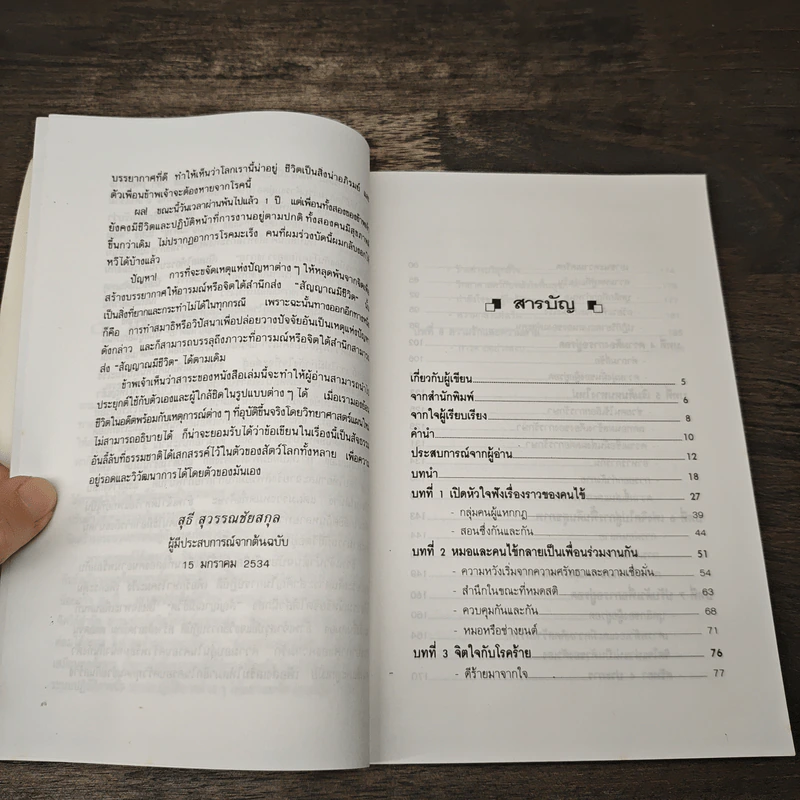 บรรยากาศที่ดี ทำให้เห็นว่าโลกเรานี้น่าอยู่ ชีวิตเป็นสิ่งน่าอภิรมย์
ตัวเพื่อนข้าพเจ้าจะต้องหายจากโรคนี้
ผล! ขณะนี้วันเวลาผ่านพ้นไปแล้ว 1 ปี แต่เพื่อนทั้งสองของข้าพเจ้า
ยังคงมีชีวิตและปฏิบัติหน้าที่การงานอยู่ตามปกติ ทั้งสองคนมีสุขภาพดี
ขึ้นกว่าเดิม ไม่ปรากฏอาการโรคมะเร็ง คนที่ผมร่วงบัดนี้ผมกลับงอก
หวีได้บ้างแล้ว
ปัญหา! การที่จะขจัดเหตุแห่งปัญหาต่าง ๆ ให้หลุดพ้นจากจิต
สร้างบรรยากาศให้อารมณ์หรือจิตใต้สำนึกส่ง "สัญญาณมีชีวิต"
เป็นสิ่งที่ยากและกระทำไม่ได้ในทุกกรณี เพราะฉะนั้นทางออกอีกทางหนึ่ง
ก็คือ การทำสมาธิหรือวิปัสนาเพื่อปล่อยวางปัจจัยอันเป็นเหตุแห่งปัญหา
ดังกล่าว และก็สามารถบรรลุถึงภาวะที่อารมณ์หรือจิตใต้สำนึกสามารถ
ส่ง "สัญญาณมีชีวิต" ได้ตามเดิม
ข้าพเจ้าเห็นว่าสาระของหนังสือเล่มนี้จะทำให้ผู้อ่านสามารถนำไป
ประยุกต์ใช้กับตัวเองและผู้ใกล้ชิดในรูปแบบต่าง ๆ ได้ เมื่อเรามองย้อน
ชีวิตในอดีตพร้อมกับเหตุการณ์ต่าง ๆ ที่อุบัติขึ้นจริงโดยวิทยาศาสตร์แผนใหม่
ไม่สามารถอธิบายได้ ก็น่าจะยอมรับได้ว่าข้อเขียนในเรื่องนี้เป็นสัจธรรม
อันลี้ลับที่ธรรมชาติได้เสกสรรค์ไว้ในตัวของสัตว์โลกทั้งหลาย เพื่อความ
อยู่รอดและวิวัฒนาการได้โดยตัวของมันเอง
สุธี สุวรรณชัยสกุล
ผู้มีประสบการณ์จากต้นฉบับ
15 มกราคม 2534
สารบัญ
เกี่ยวกับผู้เขียน 5
จากสำนักพิมพ์ 6
จากใจผู้เรียบเรียง 8
คำนำ 10
ประสบการณ์จากผู้อ่าน 12
บทนำ 18
บทที่ 1 เปิดหัวใจฟังเรื่องราวของคนไข้ 27
- กลุ่มคนผู้แหกกฎ 39
- สอนซึ่งกันและกัน 44
บทที่ 2 หมอและคนไข้กลายเป็นเพื่อนร่วมงานกัน 51
- ความหวังเริ่มจากความศรัทธาและความเชื่อมั่น 54
- สำนึกในขณะที่หมดสติ 63
- ควบคุมกันและกัน 68
- หมอหรือช่างยนต์ 71
บทที่ 3 จิตใจกับโรคร้าย 76
- ดีร้ายมาจากใจ 77